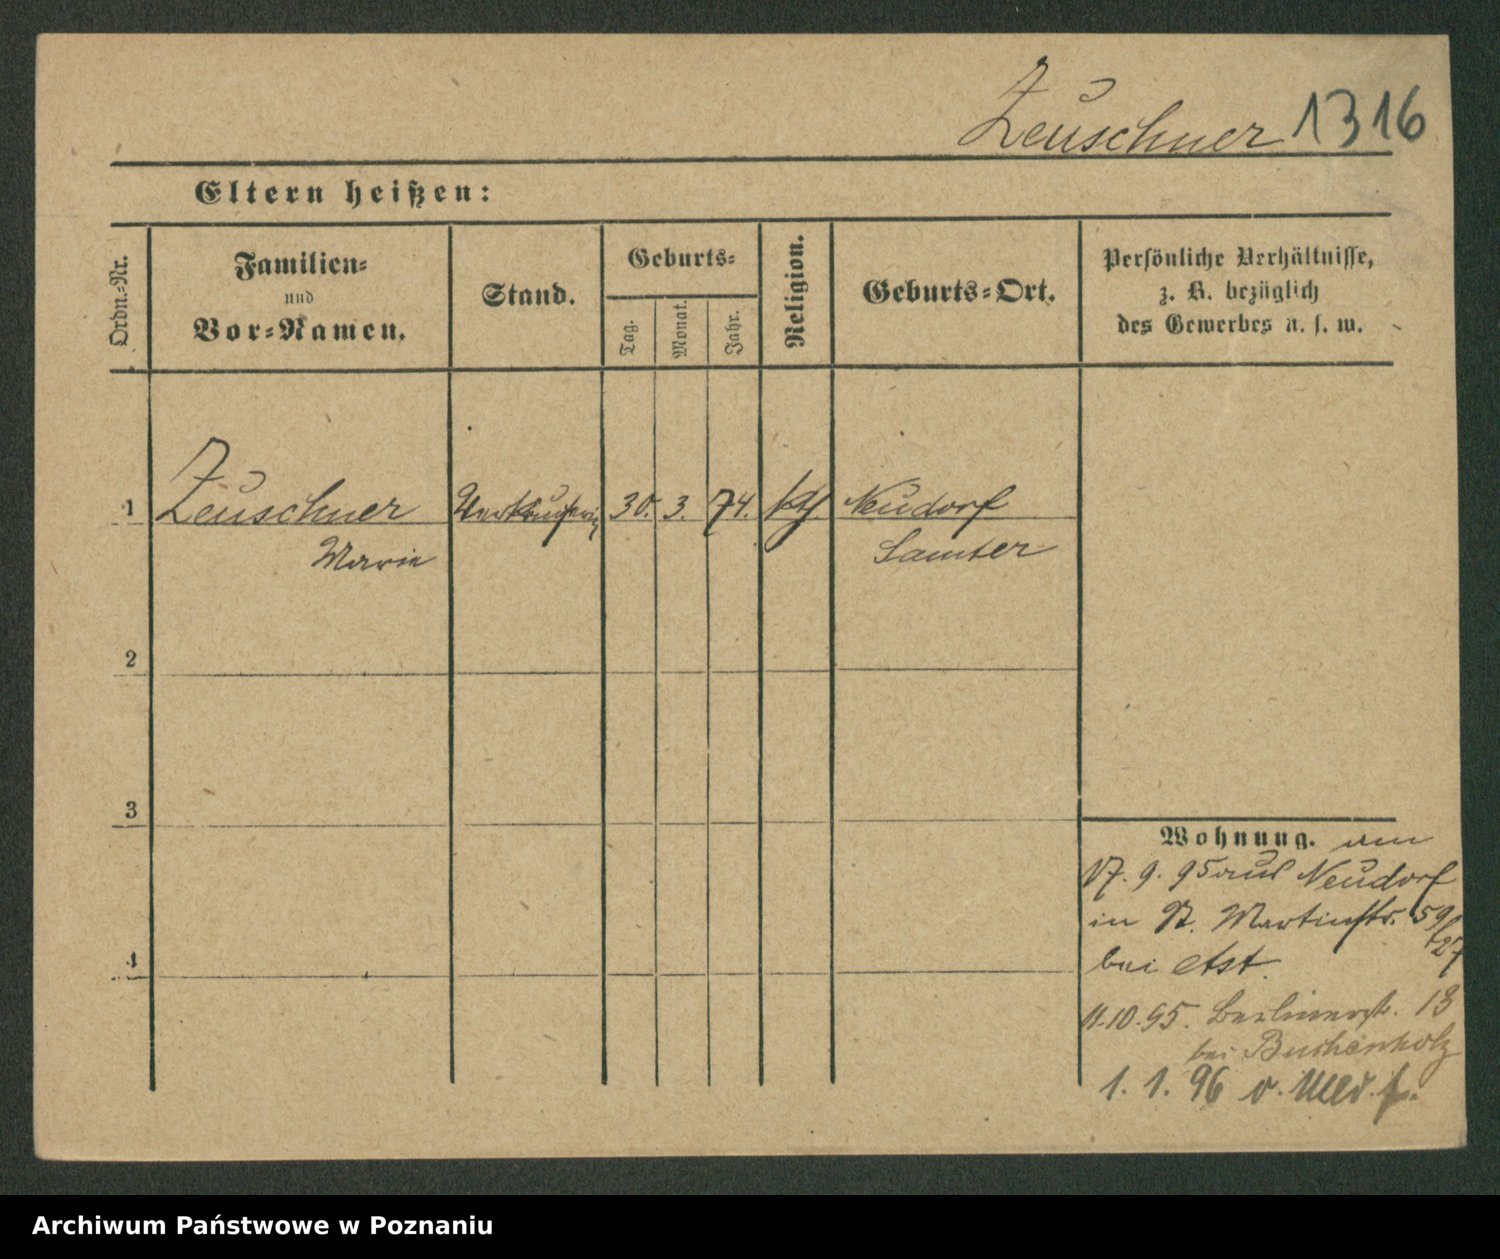 Zeuschner 1316
Eltern heißen:
Ordn.-Nr.
Familien-
und
Vor-Namen.
Stand.
Geburts-
Tag.
Monat.
Jahr.
Religion.
Geburts-Ort.
Persönliche Verhältnisse,
z. B. bezüglich
des Gewerbes u. s. w.
1 Zeuschner Verkäuferin 30. 3. 74. kth. Neudorf
Marie Samter
2
3
4
Wohnung. am
17. 9. 95 aus Neudorf
in St. Martinstr. 59/27
bei Ast.
11.10.95. Berlinerstr. 18
bei
1. 1. 96 o. Mld. f.